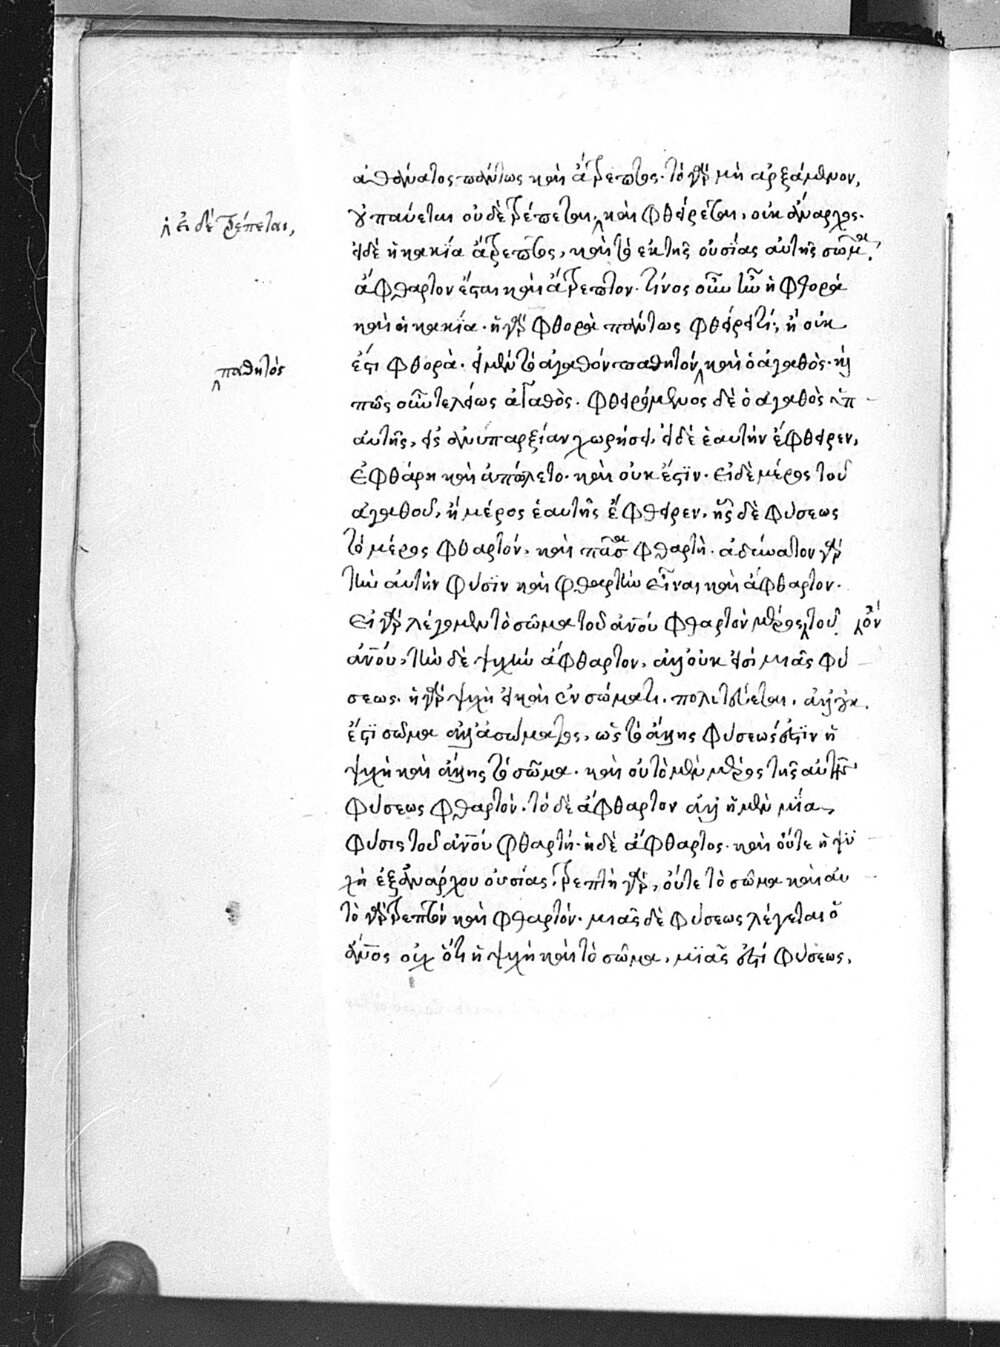 ἀθάνατος πάντως καὶ ἄτρεπτος. τὸ γὰρ μὴ ἀρξάμενον,
οὐ παύεται οὐδὲ τρέπεται, καὶ φθείρεται, οὐκ ἄναρχος.
εἰ δὲ τρέπεται,
εἰ δὲ ἡ κακία ἄτρεπτος, καὶ τὸ ἐκ τῆς οὐσίας αὐτῆς σῶμα,
ἄφθαρτον ἔσται καὶ ἄτρεπτον. τίνος οὖν ἦν ἡ φθορὰ
καὶ ἡ κακία. ἡ γὰρ φθορὰ πάντως φθείρει τί, ἢ οὐκ
ἔστι φθορά. εἰ μὲν τὸ ἀγαθὸν παθητόν, καὶ ὁ ἀγαθὸς. καὶ
παθητὸς
πῶς οὖν τελείως ἀγαθὸς. φθειρόμενος δὲ ὁ ἀγαθὸς ὑπ
αὐτῆς, εἰς ἀνυπαρξίαν χωρήσει. εἰ δὲ ἑαυτὴν ἔφθειρεν,
ἐφθάρη καὶ ἀπώλετο. καὶ οὐκ ἔστιν. εἰ δὲ μέρος τοῦ
ἀγαθοῦ, ἢ μέρος ἑαυτῆς ἔφθειρεν, ἧς δὲ φύσεως
τὸ μέρος φθαρτόν, καὶ πᾶσα φθαρτή. ἀδύνατον γὰρ
τὴν αὐτὴν φύσιν καὶ φθαρτὴν εἶναι καὶ ἄφθαρτον.
εἰ γὰρ λέγομεν τὸ σῶμα τοῦ ἀνου φθαρτὸν μέρος τοῦ
ἀνου, τὴν δὲ ψυχὴν ἄφθαρτον, ἀλλ οὐκ εἰσὶ μιᾶς φύ
σεως. ἡ γὰρ ψυχὴ εἰ καὶ ἐν σώματι πολιτεύεται, ἀλλ οὐκ
ἔστι σῶμα ἀλλ ἀσώματος, ὥστε ἄλλης φύσεώς ἐστιν ἡ
ψυχὴ καὶ ἄλλης τὸ σῶμα. καὶ οὐ τὸ μὲν μέρος τῆς αὐτῆς
φύσεως φθαρτόν. τὸ δὲ ἄφθαρτον ἀλλ ἡ μὲν μία
φύσις τοῦ ἀνου φθαρτή. ἡ δὲ ἄφθαρτος. καὶ οὔτε ἡ ψυ
χὴ ἐξ ἀνάρχου οὐσίας, τρεπτὴ γάρ, οὔτε τὸ σῶμα καὶ αὐ
τὸ γὰρ τρεπτὸν καὶ φθαρτόν. μιᾶς δὲ φύσεως λέγεται ὁ
ἄνος οὐχ ὅτι ἡ ψυχὴ καὶ τὸ σῶμα, μιᾶς ἐστι φύσεως,